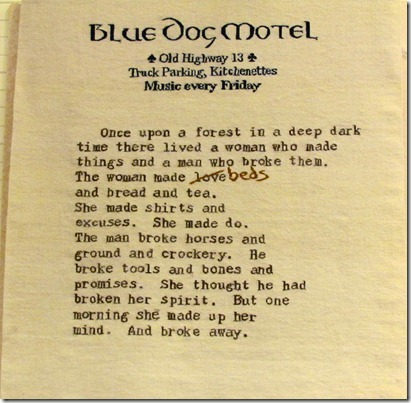 Blue Dog Motel
♠ Old Highway 13 ♣
Truck Parking, Kitchenettes
Music every Friday
Once upon a forest in a deep dark
time there lived a woman who made
things and a man who broke them.
The woman made love beds
and bread and tea.
She made shirts and
excuses. She made do.
The man broke horses and
ground and crockery. He
broke tools and bones and
promises. She thought he had
broken her spirit. But one
morning she made up her
mind. And broke away.